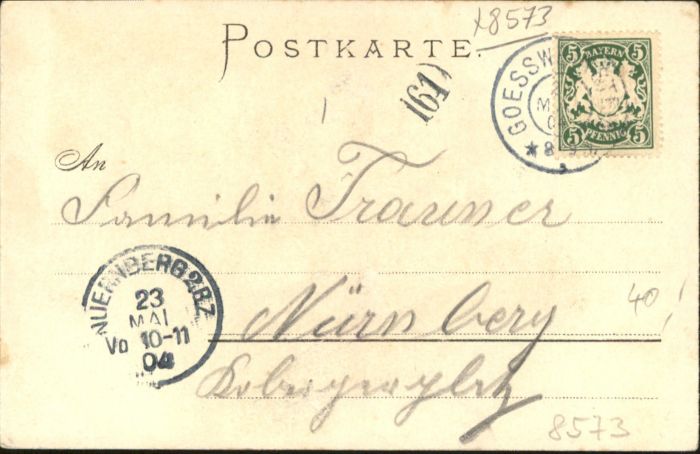 x8573
POSTKARTE.
(161)
GOESSW
M
* 8
5 BAYERN 5
5 PFENNIG 5
An
Familie Trauner
NUERNBERG 2 B.Z.
23
MAI
Vo 10-11
04
Nürnberg
40!
Kobergerplatz
8573